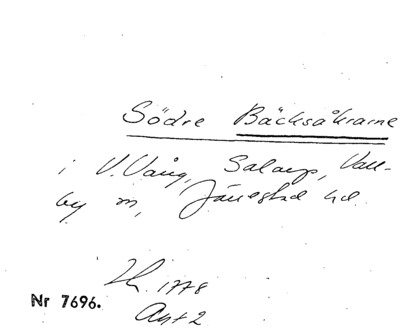 Södre Bäcksåkrarne
i V. Vång, Salarp, Vall-
by m, Järrestad hd.
Lh. 1778
Akt 2
Nr 7696.